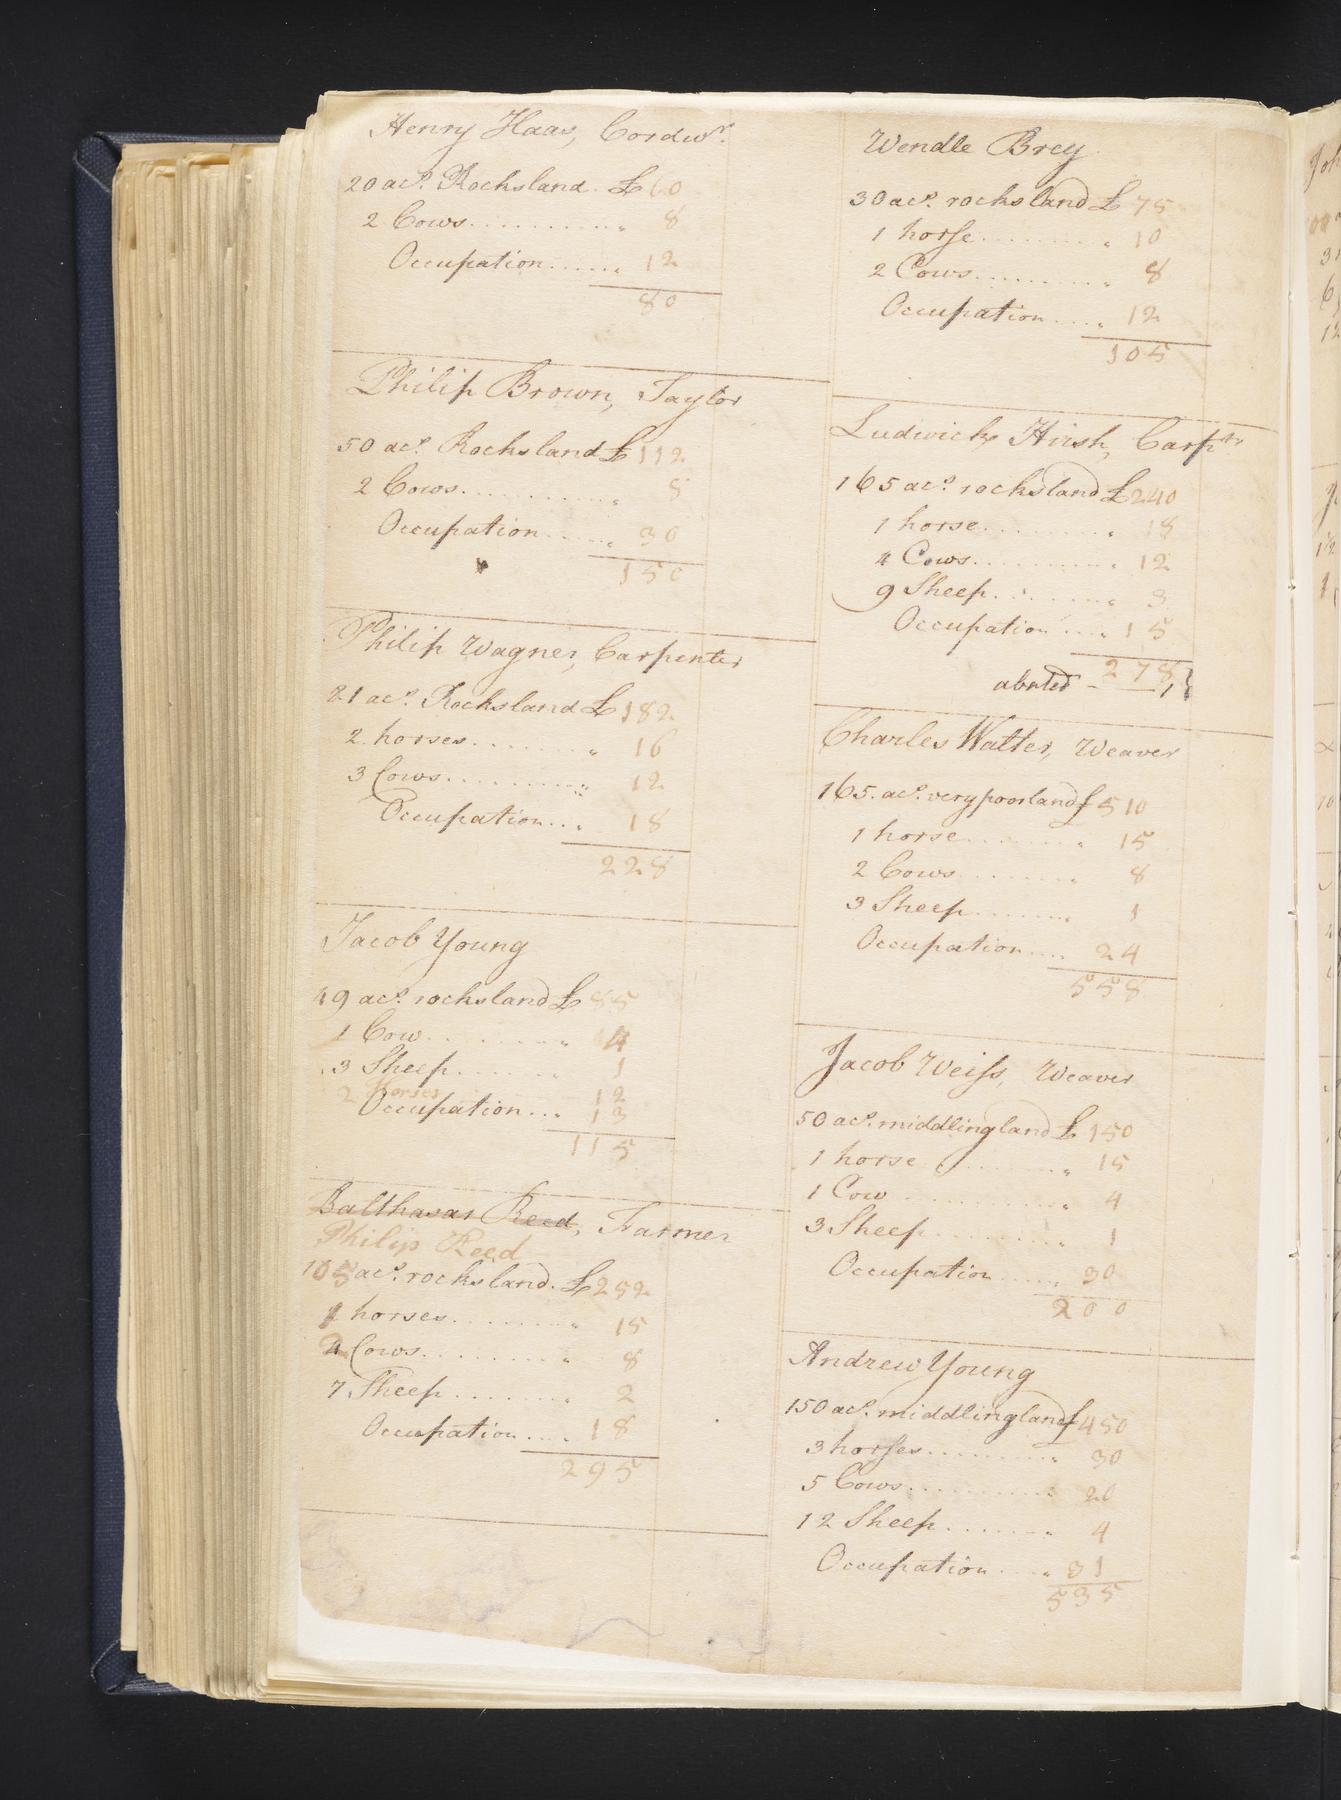 Henry Haas, Cordwr.
20 acs. Rocksland. £ 60
2 Cows . . . . . . . . . . . " 8
Occupation . . . . . . " 12
80
Philip Brown, Taylor
50 acs. Rocksland £ 112
2 Cows . . . . . . . . . . . " 8
Occupation . . . . . . " 30
150
Philip Wagner, Carpenter
21 acs. Rocksland £ 182
2 horses . . . . . . . . " 16
3 Cows . . . . . . . . . . " 12
Occupation . . . " 18
228
Jacob Young
49 acs. rocksland £ 85
1 Cow . . . . . . . . . " 4
3 Sheep . . . . . . . " 1
2 Horses 12
Occupation . . . " 13
115
Balthasar Reed, Farmer
Philip Reed
105 acs. rocksland. £ 252
1 horses . . . . . . . . . " 15
2 Cows . . . . . . . . . . " 8
7 Sheep . . . . . . . . " 2
Occupation . . . . " 18
295
Wendle Brey
30 acs. rocksland £ 75
1 horse . . . . . . . . . " 10
2 Cows . . . . . . . . . . " 8
Occupation . . . . " 12
105
Ludwick Hirsh, Carptr
165 acs. rocksland £ 240
1 horse . . . . . . . . . " 18
4 Cows . . . . . . . . . . " 12
9 Sheep . . . . . . . . " 3
Occupation . . . . " 15
278
abated
Charles Walter, Weaver
165. acs. very poor land £ 510
1 horse . . . . . . . . . " 15
2 Cows . . . . . . . . . " 8
3 Sheep . . . . . . . . " 1
Occupation . . . . 24
558
Jacob Weiss, Weaver
50 acs. middling land £ 150
1 horse . . . . . . . . . " 15
1 Cow . . . . . . . . . . " 4
3 Sheep . . . . . . . . " 1
Occupation . . . . . " 30
200
Andrew Young
150 acs. middling land £ 450
3 horses . . . . . . . . . " 30
5 Cows . . . . . . . . . . " 20
12 Sheep . . . . . . . " 4
Occupation . . . . " 31
535